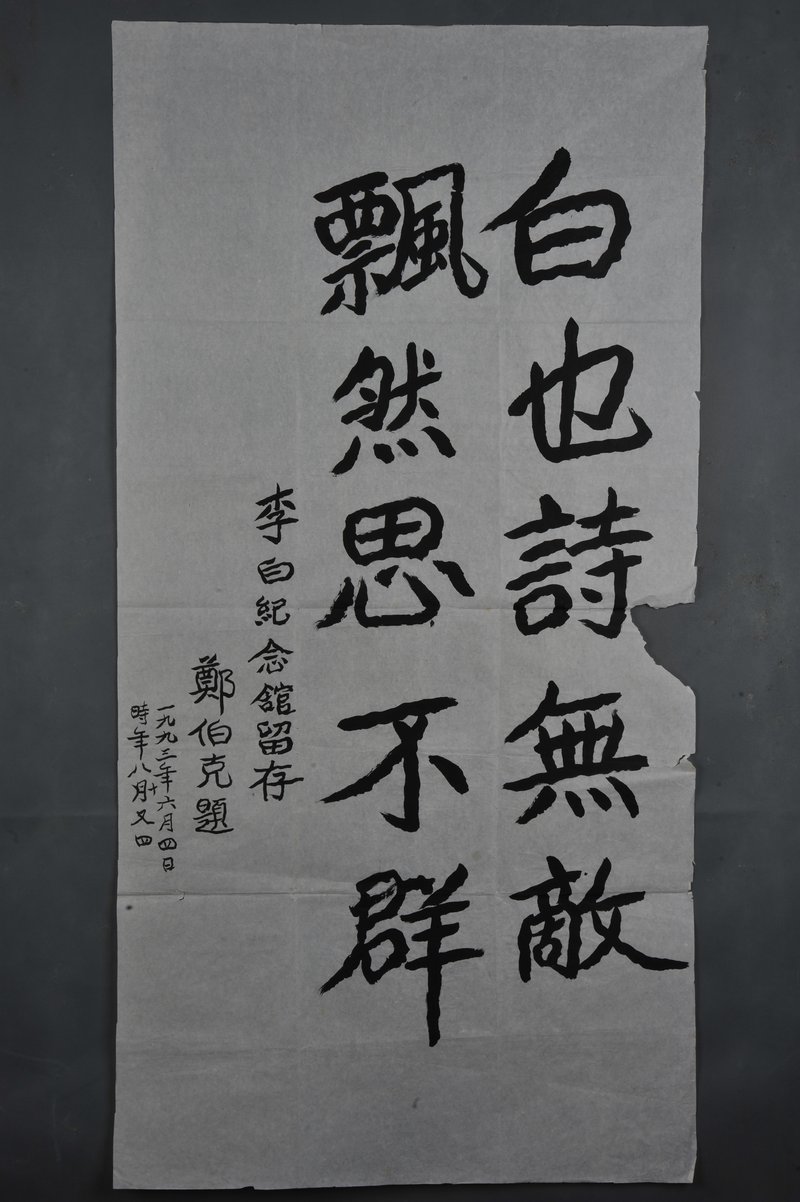 白也詩無敵
飄然思不群
李白紀念館留存
鄭伯克題
一九九三年六月四日
時年八十又四